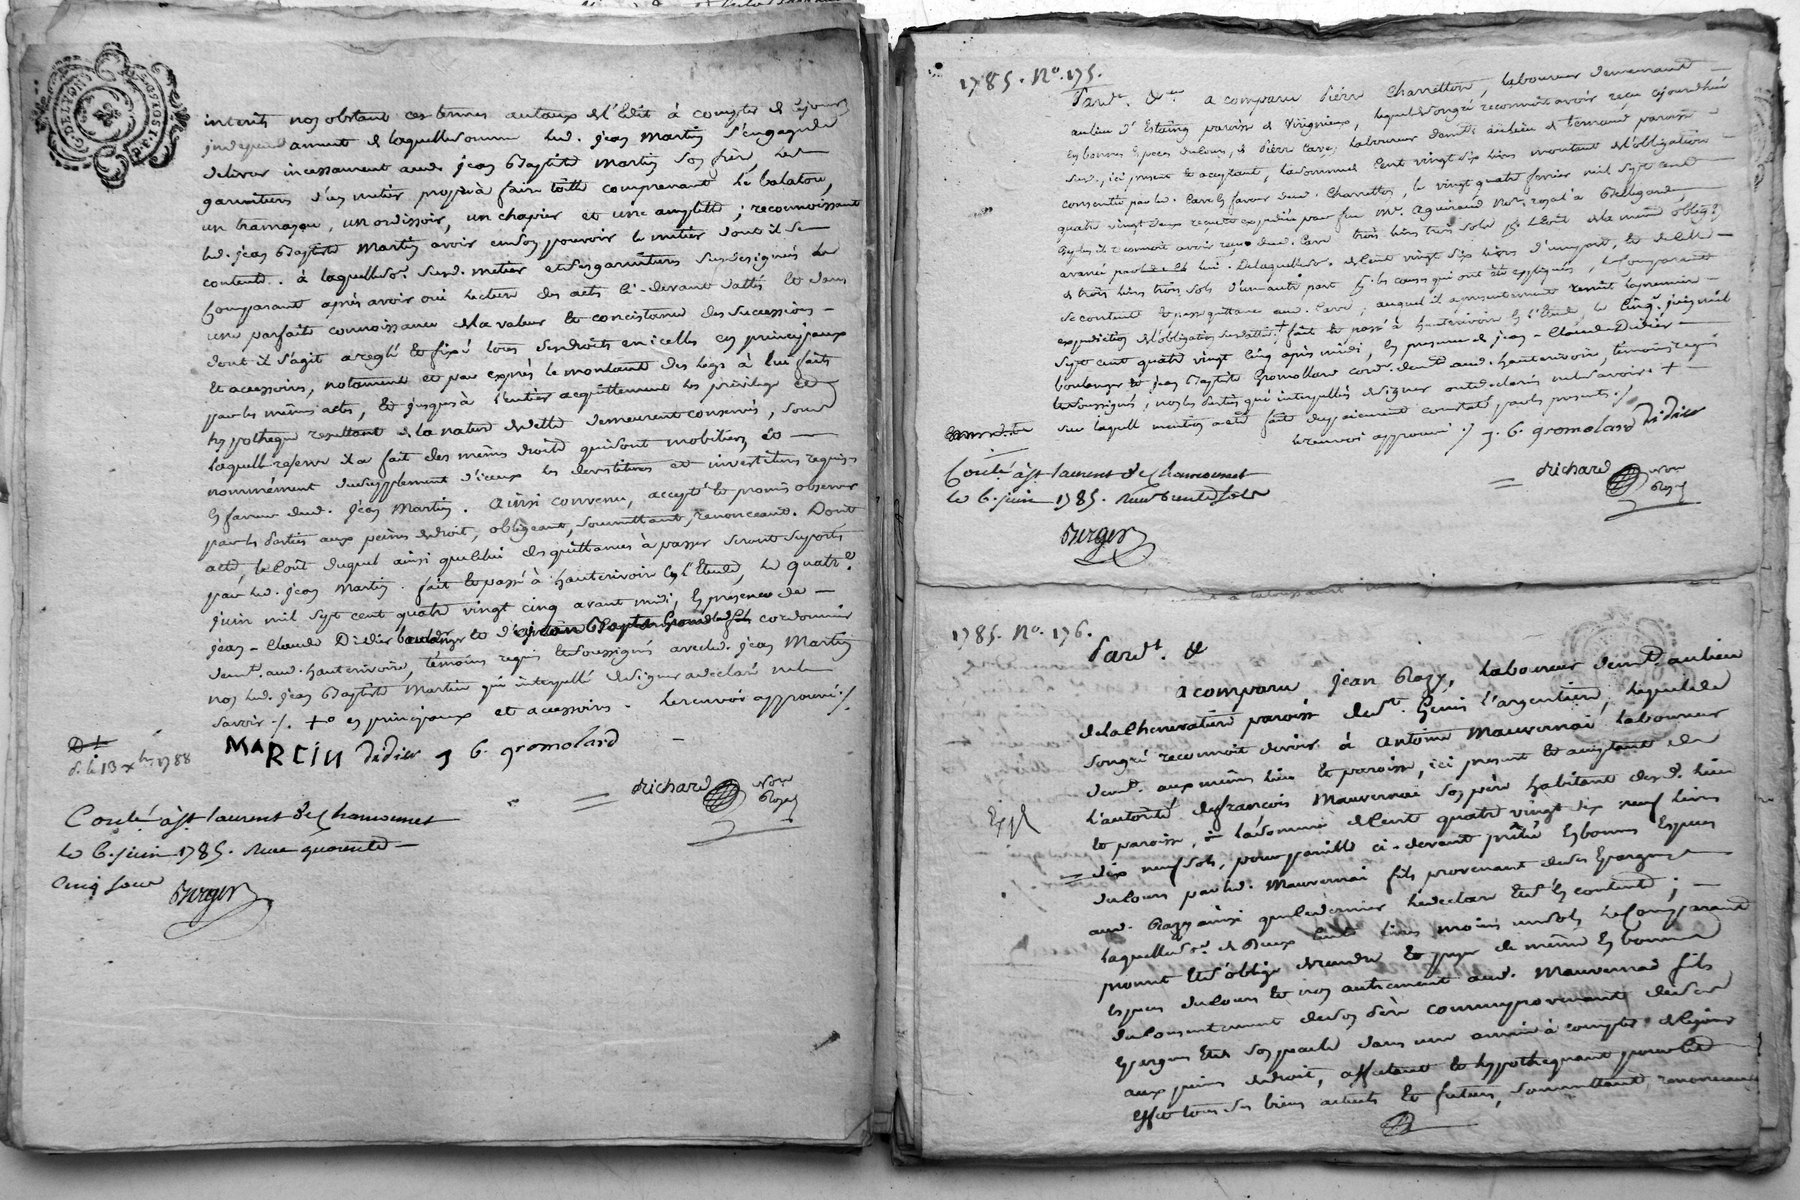 G. DE LYON
interets nonobstant ces termes au taux de l'Edit à compter de ce jour,
independament de laquelle somme led. jean Martin s'engage de
delivrer incessament aud. jean Baptiste Martin son frère, les
garnitures d'un metier propre à faire toille comprenant le balatou,
un tramayou, un ordissoir, un chapier et une ; reconnoissant
led. jean Baptiste Martin avoir en son pouvoir le metier dont il se
contente. à laquelle so.e susd. metier et ses garnitures susdesignés le
Comparant après avoir oui lecture des actes ci-devant dattés et dans
une parfaite connoissance de la valeur et concistance des successions
dont il s'agit a reglé et fixé tous ses droits en icelles en principaux
et accessoires, notament et par exprès le montant des legs à lui faits
par les mêmes actes, et jusques à l'entier acquittement les privilege et
hypotheque resultant de la nature de dette demeurent conservés, sous
laquelle reserve il a fait des mêmes droits qui sont mobiliers et
nommément du supplement d'iceux les devestitures et investitures requises
en faveur dud. jean Martin. Ainsi convenu, accepté et promis observer
par les parties aux peines de droit, obligeant, soumettant, renonceant. Dont
acte, le coût duquel ainsi que celui des quittances à passer seront suportés
par led. jean Martin. fait et passé à hauterivoire en l'Etude, le quatre
juin mil sept cent quatre vingt cinq avant midi, en presence de
jean-Claude Didier boulanger et de jean Baptiste Gromollard cordonnier
dem.t aud. hauterivoire, temoins requis et soussignés avec led. jean Martin
non led. jean Baptiste Martin qui interpellé de signer a declaré ne le
savoir ./. + en principaux et accessoires. le renvoi approuvé ./.
MARCIN Didier J B. gromolard
d. le 13 xbre 1788
Richard Not.re Royal
Conlé à St laurent de Chamousset
le 6. juin 1785. Reçu quarente
cinq sous
Berger
1785. N.o 175.
Pard.t &.a a comparu pierre Charretton, laboureur demeurant
au lieu d'Estaing paroisse de Virignieux, lequel de son gré reconnoit avoir reçu ajourdhui
en bonnes Especes du cours, de pierre Carré, laboureur demt au lieu de paroisse
sud., ici present et acceptant, la somme de Cent vingt six livres montant de l'obligation
consentie par led. Carré en faveur dud. Charretton, le vingt quatre fevrier mil sept cent
quatre vingt deux reçue et expediée par feu M.e Aguiraud Not.re royal à Bellegarde,
de plus il reconnoit avoir reçu dud. Carré trois livres trois sols pr. le Coût de la même oblig.on
avancé par led. lui. De laquelle so.e de Cent vingt six livres d'une part, et de celle
de trois livres trois sols d'une autre part pr. les causes qui ont été expliquées, le Comparant
se contente et passe quittance aud. Carré, auquel il a presentement remis la premiere
expedition de l'obligation susdattée. + fait et passé à hauterivoire en l'Etude, le cinq. juin mil
sept cent quatre vingt cinq après midi, en presence de jean-Claude Didier
boulanger et jean Baptiste Gromollard cord.er dem.t aud. hauterivoire, témoins requis
et soussignés, non les parties qui interpellés de signer ont declaré ne le savoir. +
sur laquelle mention a été faite du paiement constaté par les presentes ./.
le renvoi approuvé ./. J. B. gromolard Didier
Conlé à St laurent de Chamousset
le 6. juin 1785. Reçu sols
Berger
Richard Not.re Royal
1785. N.o 176.
Pard.t &
a comparu jean Ragy, laboureur dem.t au lieu
de la Cheneratiere paroisse de St. Genis l'argentiere, lequel de
son gré reconnoit devoir à Antoine Mauvernai laboureur
dem.t aux mêmes lieu et paroisse, ici present et acceptant de
l'autorité de françois Mauvernai son père habitant desd. lieu
et paroisse, la somme de Cent quatre vingt dix neuf livres
dix neuf sols, pour pareille ci-devant prêtée en bonnes Especes
Expé
du cours par led. Mauvernai fils provenant de ses Epargnes
aud. Ragy ainsi que ce dernier le declare et s'en contente ;
laquelle so.e de Deux Cents livres moins un sol, le Comparant
promet et s'oblige de rendre et payer de même en bonnes
especes du cours et non autrement aud. Mauvernai fils
du consentement de son père comme provenant de ses
Epargnes et de son pecule dans une année à compter de ce jour
aux peines de droit, affectant et hypothequant pour led.
effet tous ses biens actuels et futurs, soumettant, renonceant